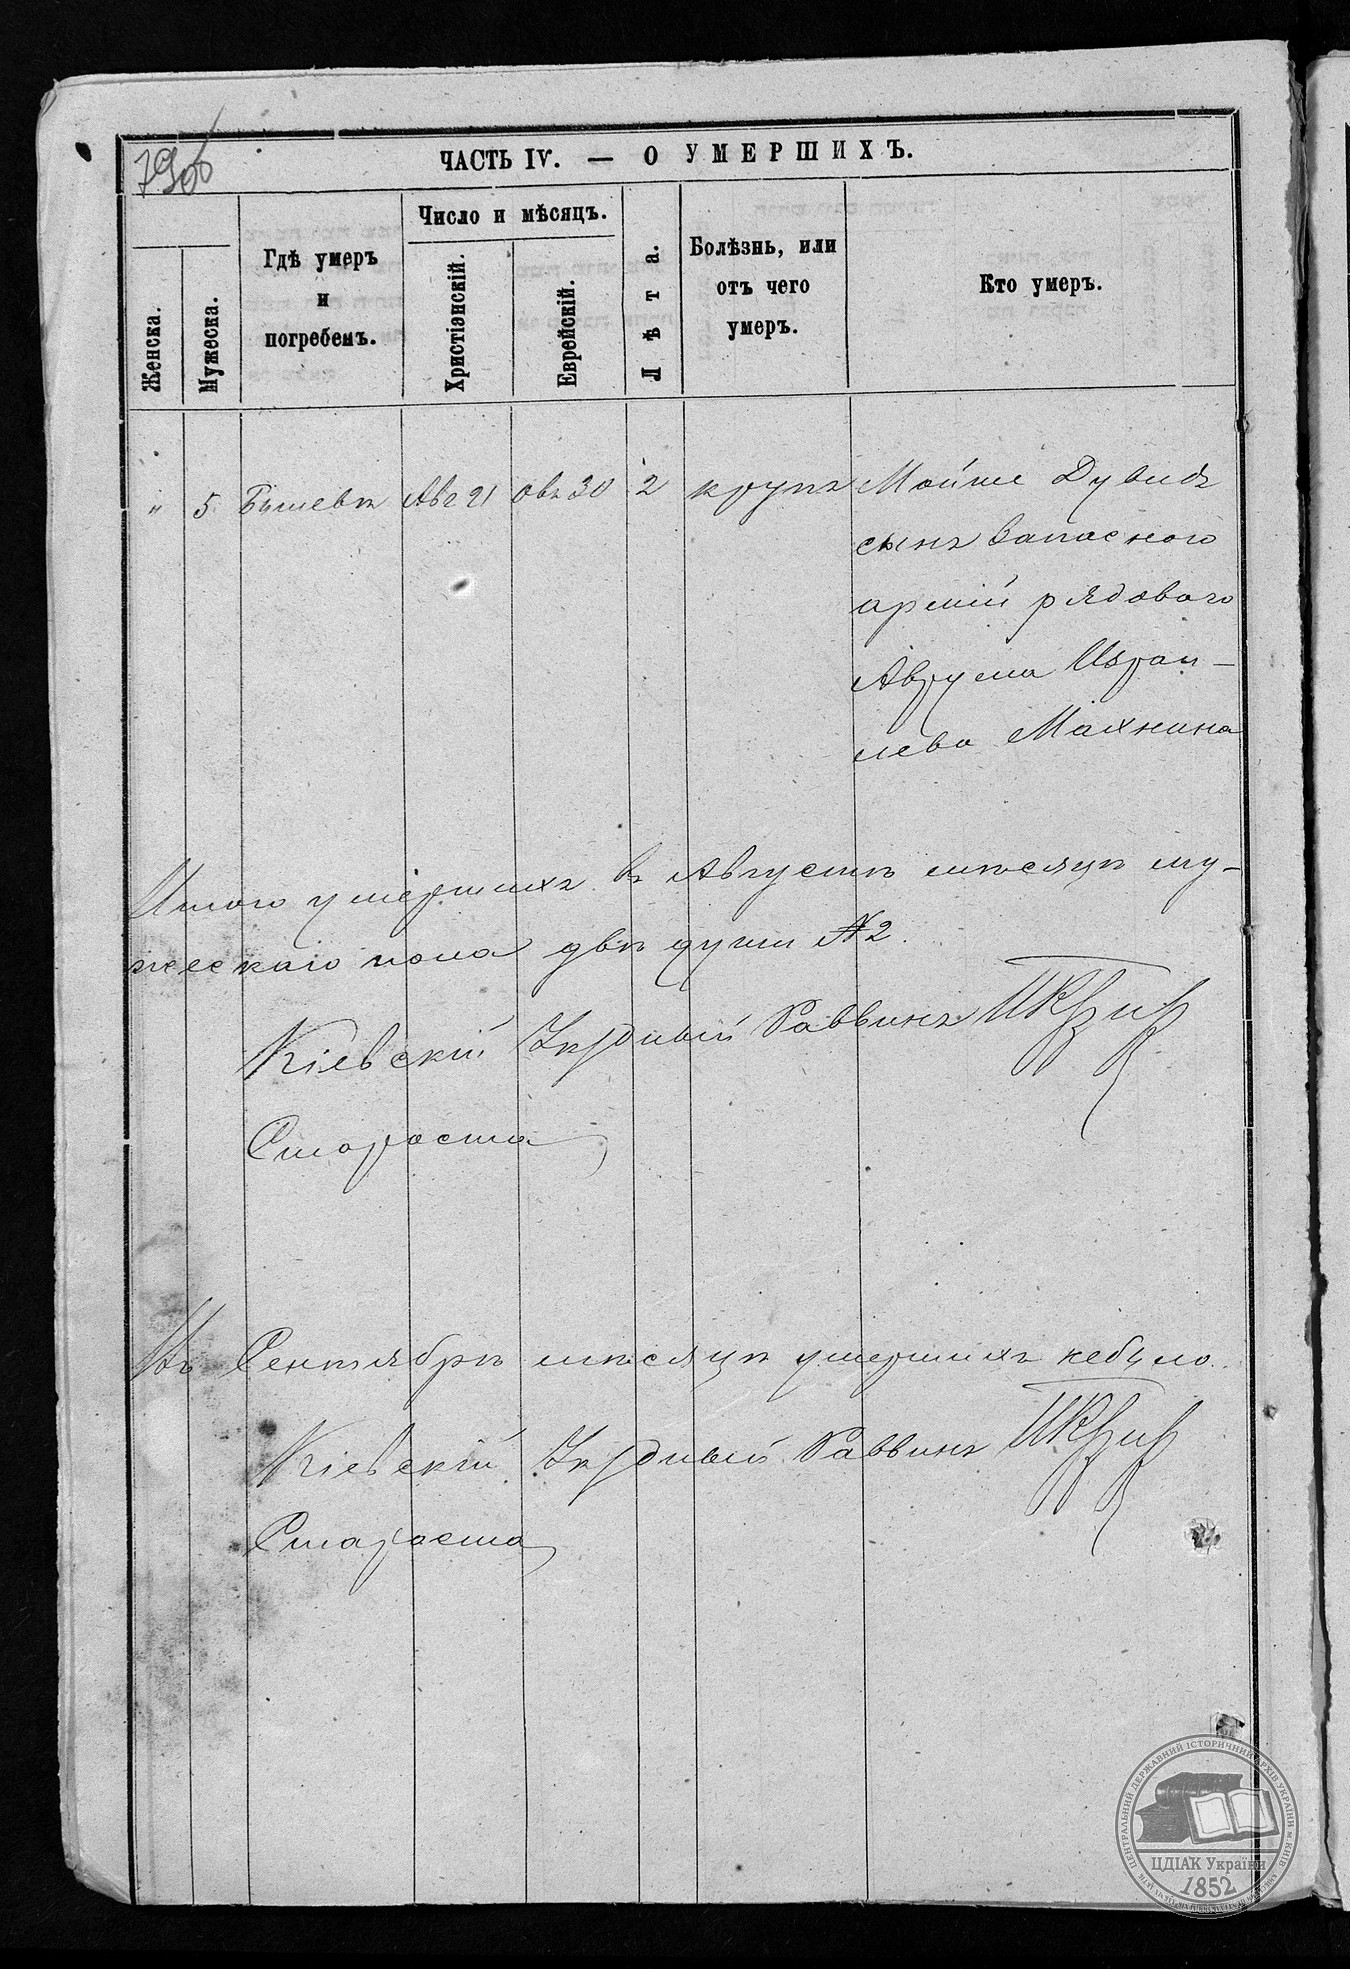 79об
ЧАСТЬ IV. — О УМЕРШИХЪ.
Женска.
Мужеска.
Гдѣ умеръ
и
погребенъ.
Число и мѣсяцъ.
Христіэнскій.
Еврейскій.
Лѣта.
Болѣзнь, или
отъ чего
умеръ.
Кто умеръ.
" 5 Бышевѣ Авг 21 Овъ 30 2 крупъ Мойше Дувидъ
сынъ запасного
арміи рядового
Аврума Израи-
лева Махнина
Итого умершихъ въ Августѣ мѣсяцѣ му-
жескаго пола двѣ души № 2.
Кіевскій Уѣздный Раввинъ
Староста
Въ Сентябрѣ мѣсяцѣ умершихъ небыло.
Кіевскій Уѣздный Раввинъ
Староста
ЦЕНТРАЛЬНИЙ ДЕРЖАВНИЙ ІСТОРИЧНИЙ АРХІВ УКРАЇНИ м. КИЇВ
ЦДІАК України
1852